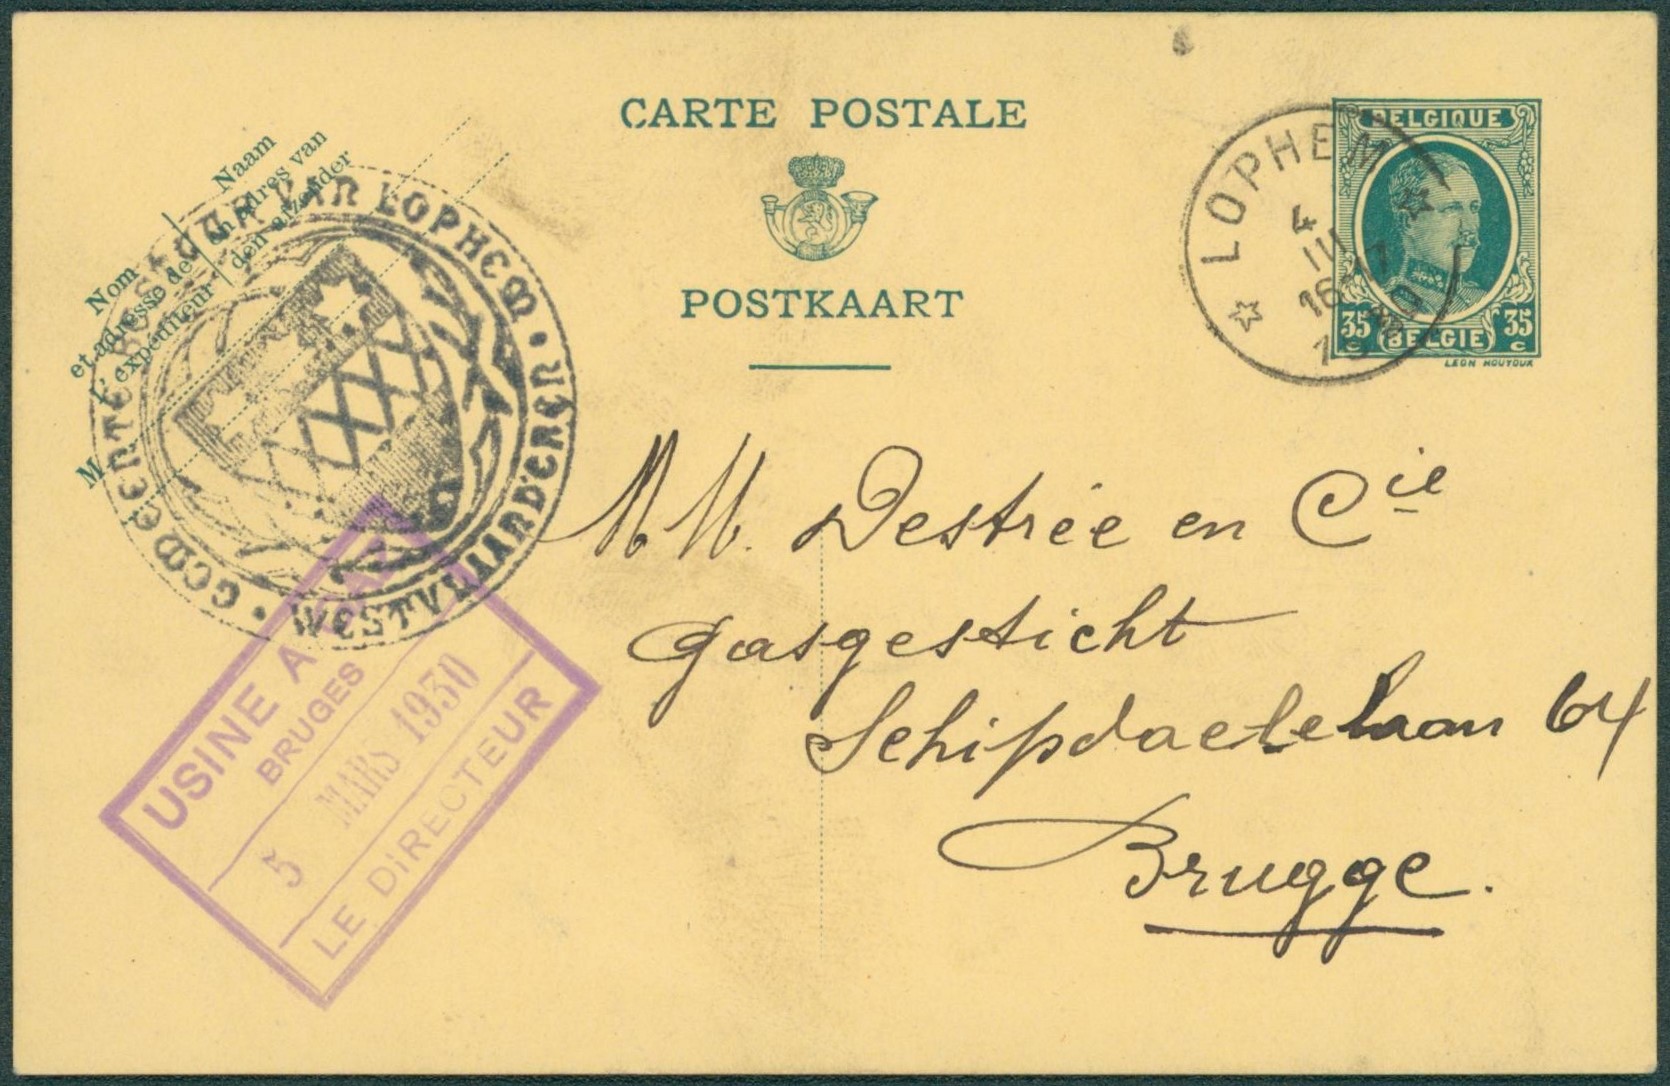 CARTE POSTALE
POSTKAART
Naam
en adres van
den afzender
Nom
et adresse de
l'expéditeur
M
GEMEENTEBESTUUR VAN LOPHEM • WESTVLAANDEREN •
LOPHEM
4
III
16-17
BELGIQUE
35 c
BELGIE
35 c
LEON HOUYOUX
MM. Destrée en Cie
Gasgesticht
Schipdaelelaan 64
Brugge.
USINE A
BRUGES
5 MARS 1930
LE DIRECTEUR